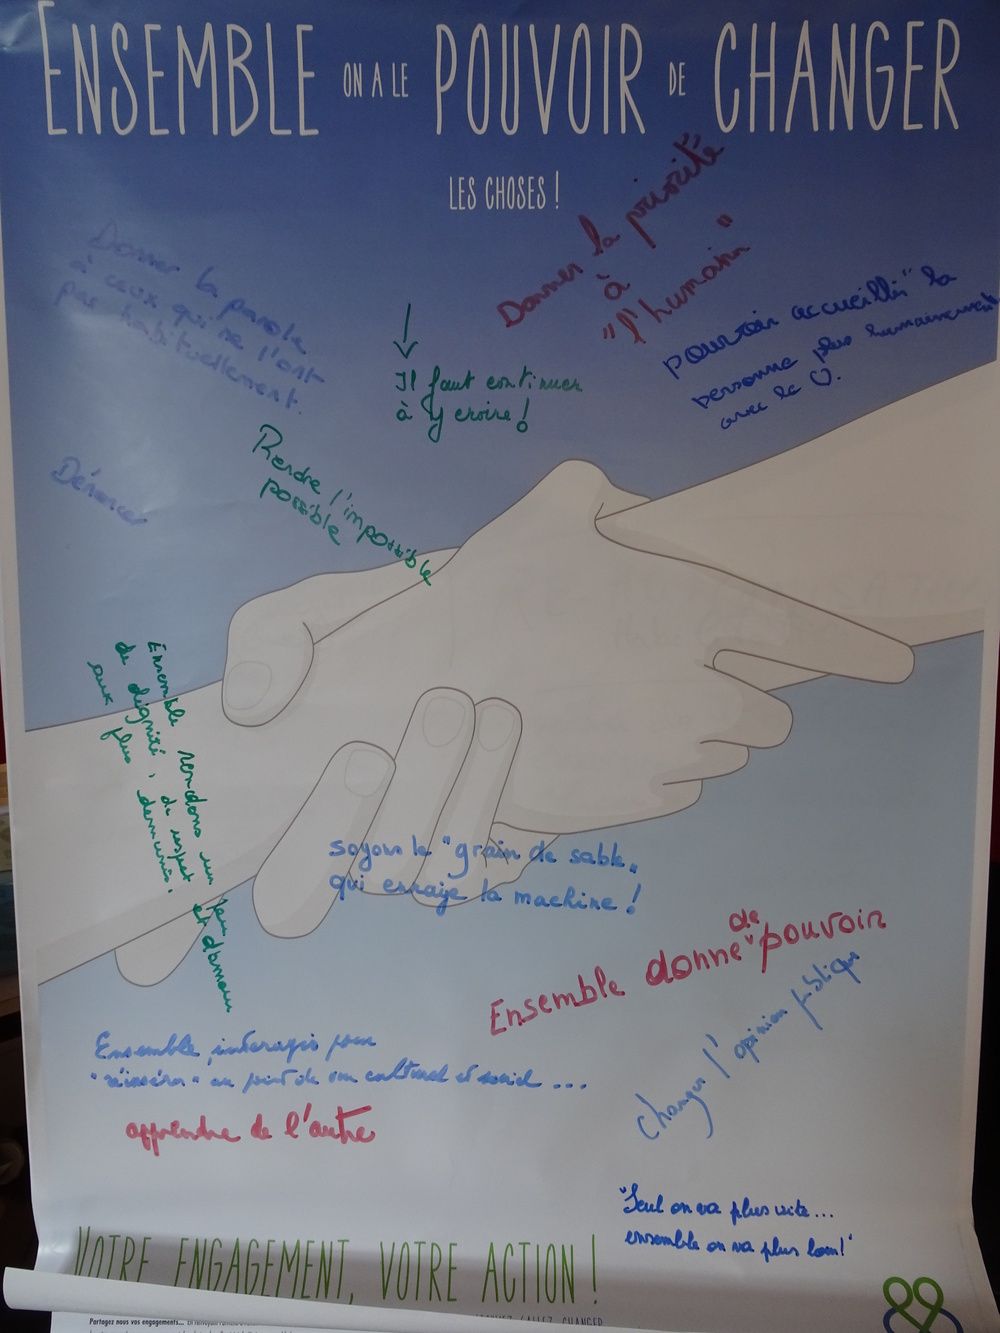 ENSEMBLE ON A LE POUVOIR DE CHANGER
LES CHOSES !
Donner la priorité
à
"l'humain"
Donner la parole
à ceux qui ne l'ont
pas habituellement.
pouvoir accueillir" la
personne plus humainement
avec le ♡.
Il faut continuer
à y croire !
Rendre l'impossible
possible
Dénoncer
Ensemble rendons un peu
de dignité, de respect et d'amour
aux plus démunis.
soyons le "grain de sable"
qui enraye la machine !
de
Ensemble donne pouvoir
Changer l'opinion publique
Ensemble, interagir pour
"réinsérer" au point de vue culturel et social ...
apprendre de l'autre
"Seul on va plus vite...
ensemble on va plus loin!"
VOTRE ENGAGEMENT, VOTRE ACTION !
Partagez nous vos engagements...